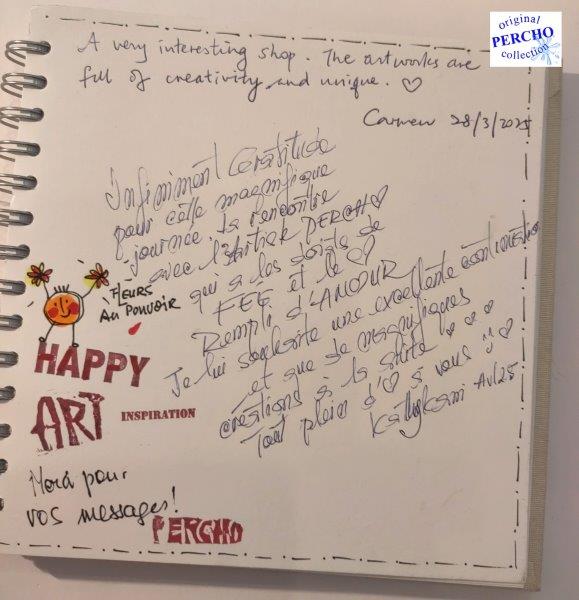 original
PERCHO
collection
A very interesting shop. The artworks are
full of creativity and unique. ♡
Carmen 28/3/2025
Infiniment Gratitude
pour cette magnifique
journée. La rencontre
avec l'Artiste PERCHO
qui a les doigts de
FÉE et le ♡
Rempli d'AMOUR
Je lui souhaite une excellente continuation
et que de magnifiques
créations à la suite ♡ ♡ ♡
Tout plein d'♡ à vous
Avl 25
FLEURS
AU POUVOIR
HAPPY
ART INSPIRATION
Merci pour
vos messages!
PERCHO